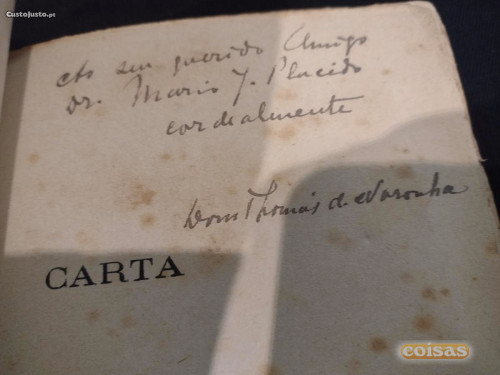 CustoJusto.pt
Ao seu querido Amigo
Dr. Mario J. Placido
cordealmente
Dom Thomás d. Noronha
CARTA
coisas